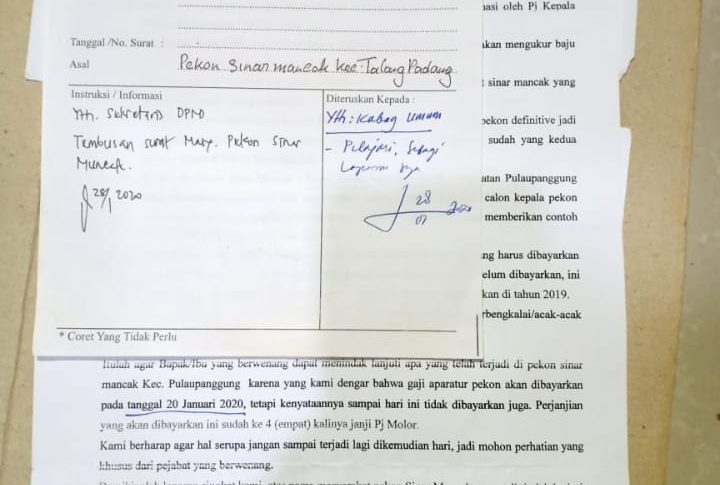 Tanggal /No. Surat :
Asal
Pekon Sinar mancak kec. Talang Padang
Instruksi / Informasi
Yth. Sekretaris DPMD
Tembusan surat Masy. Pekon Sinar
Muncak.
28/1 2020
Diteruskan Kepada :
Yth : Kabag Umum
- Pelajari, Sebagi
Laporan sya
28
07 2020
* Coret Yang Tidak Perlu
oleh Pj Kepala
mengukur baju
sinar mancak yang
pekon definitive jadi
sudah yang kedua
Pulaupanggung
calon kepala pekon
memberikan contoh
harus dibayarkan
dibayarkan, ini
di tahun 2019.
itulah agar Bapak/Ibu yang berwenang dapat menindak lanjuti apa yang telah terjadi di pekon sinar
mancak Kec. Pulaupanggung karena yang kami dengar bahwa gaji aparatur pekon akan dibayarkan
pada tanggal 20 Januari 2020, tetapi kenyataannya sampai hari ini tidak dibayarkan juga. Perjanjian
yang akan dibayarkan ini sudah ke 4 (empat) kalinya janji Pj Molor.
Kami berharap agar hal serupa jangan sampai terjadi lagi dikemudian hari, jadi mohon perhatian yang
khusus dari pejabat yang berwenang.